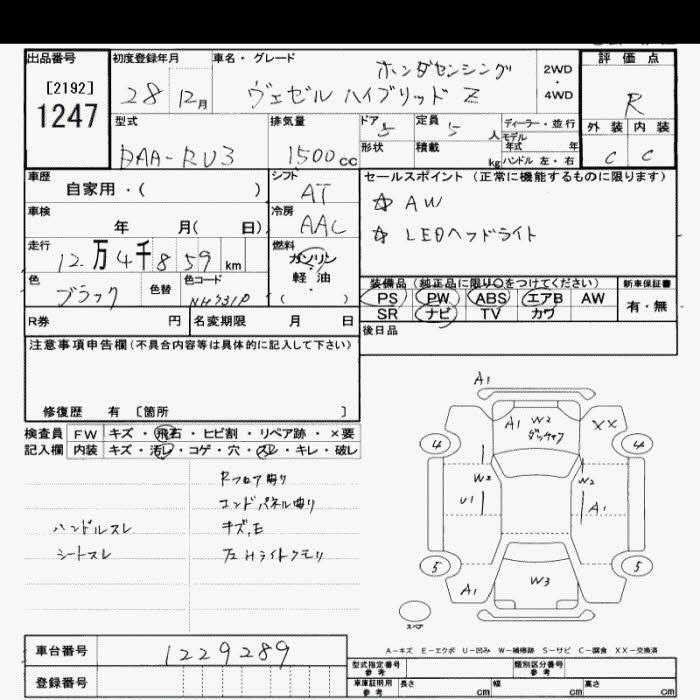 出品番号
[2192]
1247
初度登録年月
28 12月
車名・グレード
ホンダセンシング
ヴェゼル ハイブリッド Z
2WD
・
4WD
評価点
R
外装 内装
C C
型式
DAA-RU3
排気量
1500cc
ドア 5
定員 5人
ディーラー・並行
モデル年式 年
形状
積載 kg
ハンドル 左・右
車歴
自家用・( )
シフト
AT
車検
年 月( 日)
冷房
AAC
走行
12万4千859km
燃料
ガソリン
軽油
・
( )
色
ブラック
色替
色コード
NH731P
セールスポイント (正常に機能するものに限ります)
☆ AW
☆ LEDヘッドライト
装備品 (純正品に限り○をつけてください)
PS PW ABS エアB AW
SR ナビ TV カワ
新車保証書
有・無
後日品
R券 円
名変期限 月 日
注意事項申告欄(不具合内容等は具体的に記入して下さい)
修復歴 有 〔箇所 〕
検査員記入欄
FW キズ・飛石・ヒビ割・リペア跡・×要
内装 キズ・汚レ・コゲ・穴・スレ・キレ・破レ
ハンドルスレ
シートスレ
Rフロア曲り
エンドパネル曲り
キズ,E
Hライトクモリ
A1
A1 W2
XX
4 4
W2 W2
U1 A1
5 5
A1 W3
スペア
A-キズ E-エクボ U-凹み W-補修跡 S-サビ C-腐食 XX-交換済
車台番号
1229289
登録番号
型式指定番号
参考
類別区分番号
参考
車庫証明用
参考
長さ cm
幅 cm
高さ cm